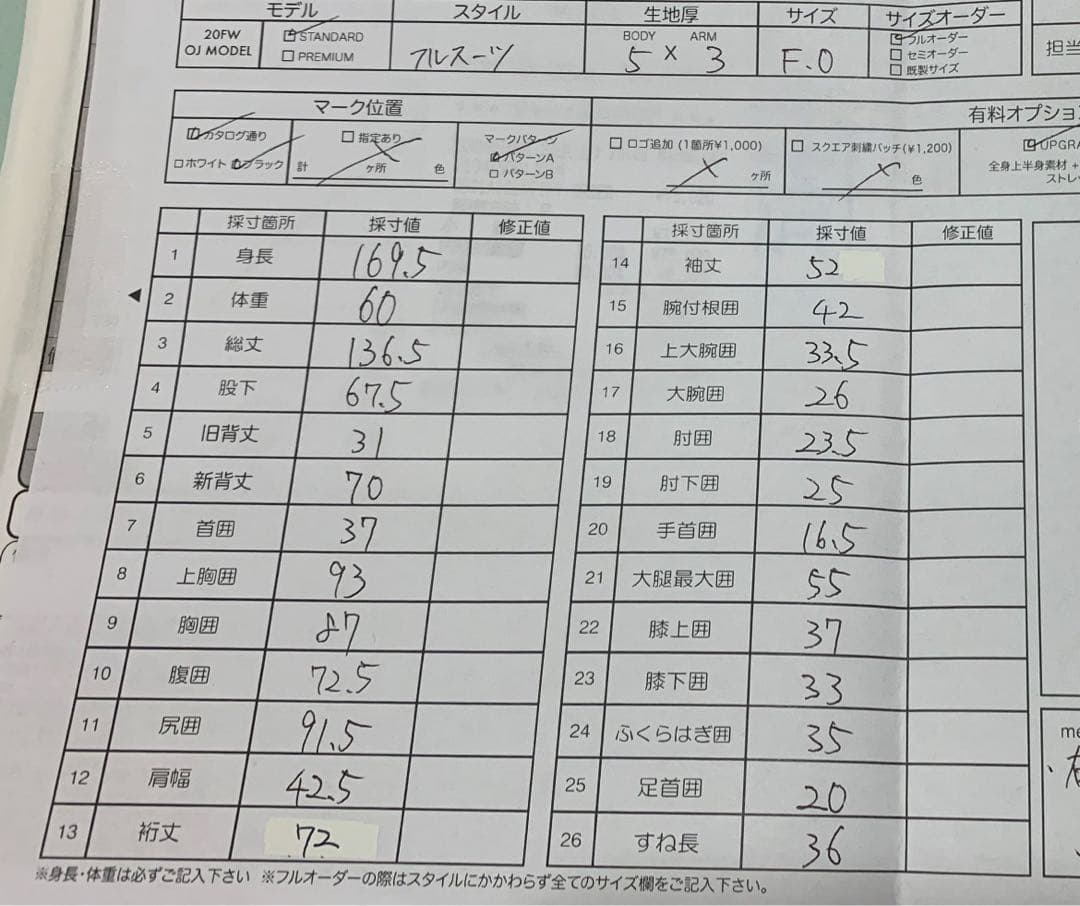 モデル スタイル 生地厚 サイズ サイズオーダー
20FW OJ MODEL
STANDARD
PREMIUM
フルスーツ
BODY ARM
5 × 3
F.O
フルオーダー
セミオーダー
既製サイズ
担当
マーク位置
カタログ通り
ホワイト ブラック
指定あり
計 ヶ所 色
マークパターン
パターンA
パターンB
有料オプショ
ロゴ追加 (1箇所¥1,000)
ヶ所
スクエア刺繍パッチ(¥1,200)
色
UPGRA
全身上半身素材 +
ストレッ
採寸箇所 採寸値 修正値
1 身長 169.5
2 体重 60
3 総丈 136.5
4 股下 67.5
5 旧背丈 31
6 新背丈 70
7 首囲 37
8 上胸囲 93
9 胸囲 87
10 腹囲 72.5
11 尻囲 91.5
12 肩幅 42.5
13 裄丈 72
採寸箇所 採寸値 修正値
14 袖丈 52
15 腕付根囲 42
16 上大腕囲 33.5
17 大腕囲 26
18 肘囲 23.5
19 肘下囲 25
20 手首囲 16.5
21 大腿最大囲 55
22 膝上囲 37
23 膝下囲 33
24 ふくらはぎ囲 35
25 足首囲 20
26 すね長 36
me
※身長・体重は必ずご記入下さい ※フルオーダーの際はスタイルにかかわらず全てのサイズ欄をご記入下さい。